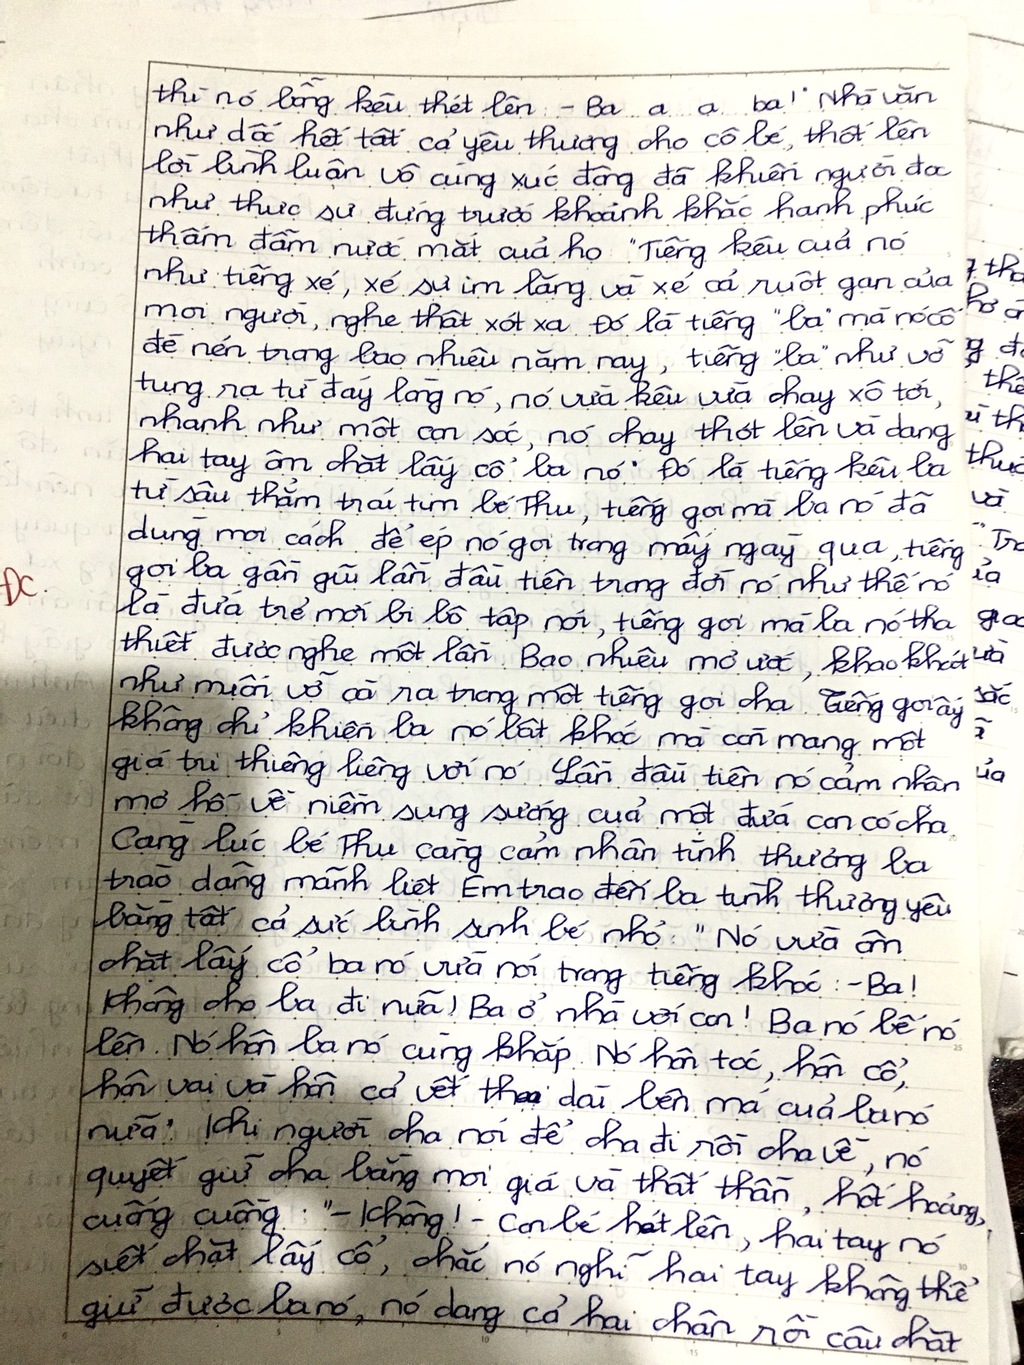 thì nó bỗng kêu thét lên - Ba a a ba!" Nhà văn
như dốc hết tất cả yêu thương cho cô bé, thốt lên
lời bình luận vô cùng xúc động đã khiến người đọc
như thực sự đứng trước khoảnh khắc hạnh phúc
thấm đẫm nước mắt của họ "Tiếng kêu của nó
như tiếng xé, xé sự im lặng và xé cả ruột gan của
mọi người, nghe thật xót xa. Đó là tiếng "ba" mà nó cố
đè nén trong bao nhiêu năm nay, tiếng "ba" như vỡ
tung ra từ đáy lòng nó, nó vừa kêu vừa chạy xô tới,
nhanh như một con sóc, nó chạy thót lên và dang
hai tay ôm chặt lấy cổ ba nó". Đó là tiếng kêu ba
từ sâu thẳm trái tim bé Thu, tiếng gọi mà ba nó đã
dùng mọi cách để ép nó gọi trong mấy ngày qua, tiếng
gọi ba gần gũi lần đầu tiên trong đời nó như thế nó
là đứa trẻ mới bi bô tập nói, tiếng gọi mà ba nó tha
thiết được nghe một lần. Bao nhiêu mơ ước, khao khát
như muốn vỡ oà ra trong một tiếng gọi cha. Tiếng gọi ấy
không chỉ khiến ba nó bật khóc mà còn mang một
giá trị thiêng liêng với nó. Lần đầu tiên nó cảm nhận
mơ hồ về niềm sung sướng của một đứa con có cha.
Càng lúc bé Thu càng cảm nhận tình thương ba
trào dâng mãnh liệt. Em trao đến ba tình thương yêu
bằng tất cả sức bình sinh bé nhỏ: "Nó vừa ôm
chặt lấy cổ ba nó vừa nói trong tiếng khóc: - Ba!
Không cho ba đi nữa! Ba ở nhà với con! Ba nó bế nó
lên. Nó hôn ba nó cùng khắp. Nó hôn tóc, hôn cổ,
hôn vai và hôn cả vết thẹo dài bên má của ba nó
nữa". Khi người cha nói để cha đi rồi cha về, nó
quyết giữ cha bằng mọi giá và thất thần, hốt hoảng,
cuống cuồng: "- Không! - Con bé hét lên, hai tay nó
siết chặt lấy cổ, chắc nó nghĩ hai tay không thể
giữ được ba nó, nó dang cả hai chân rồi câu chặt
ĐC.